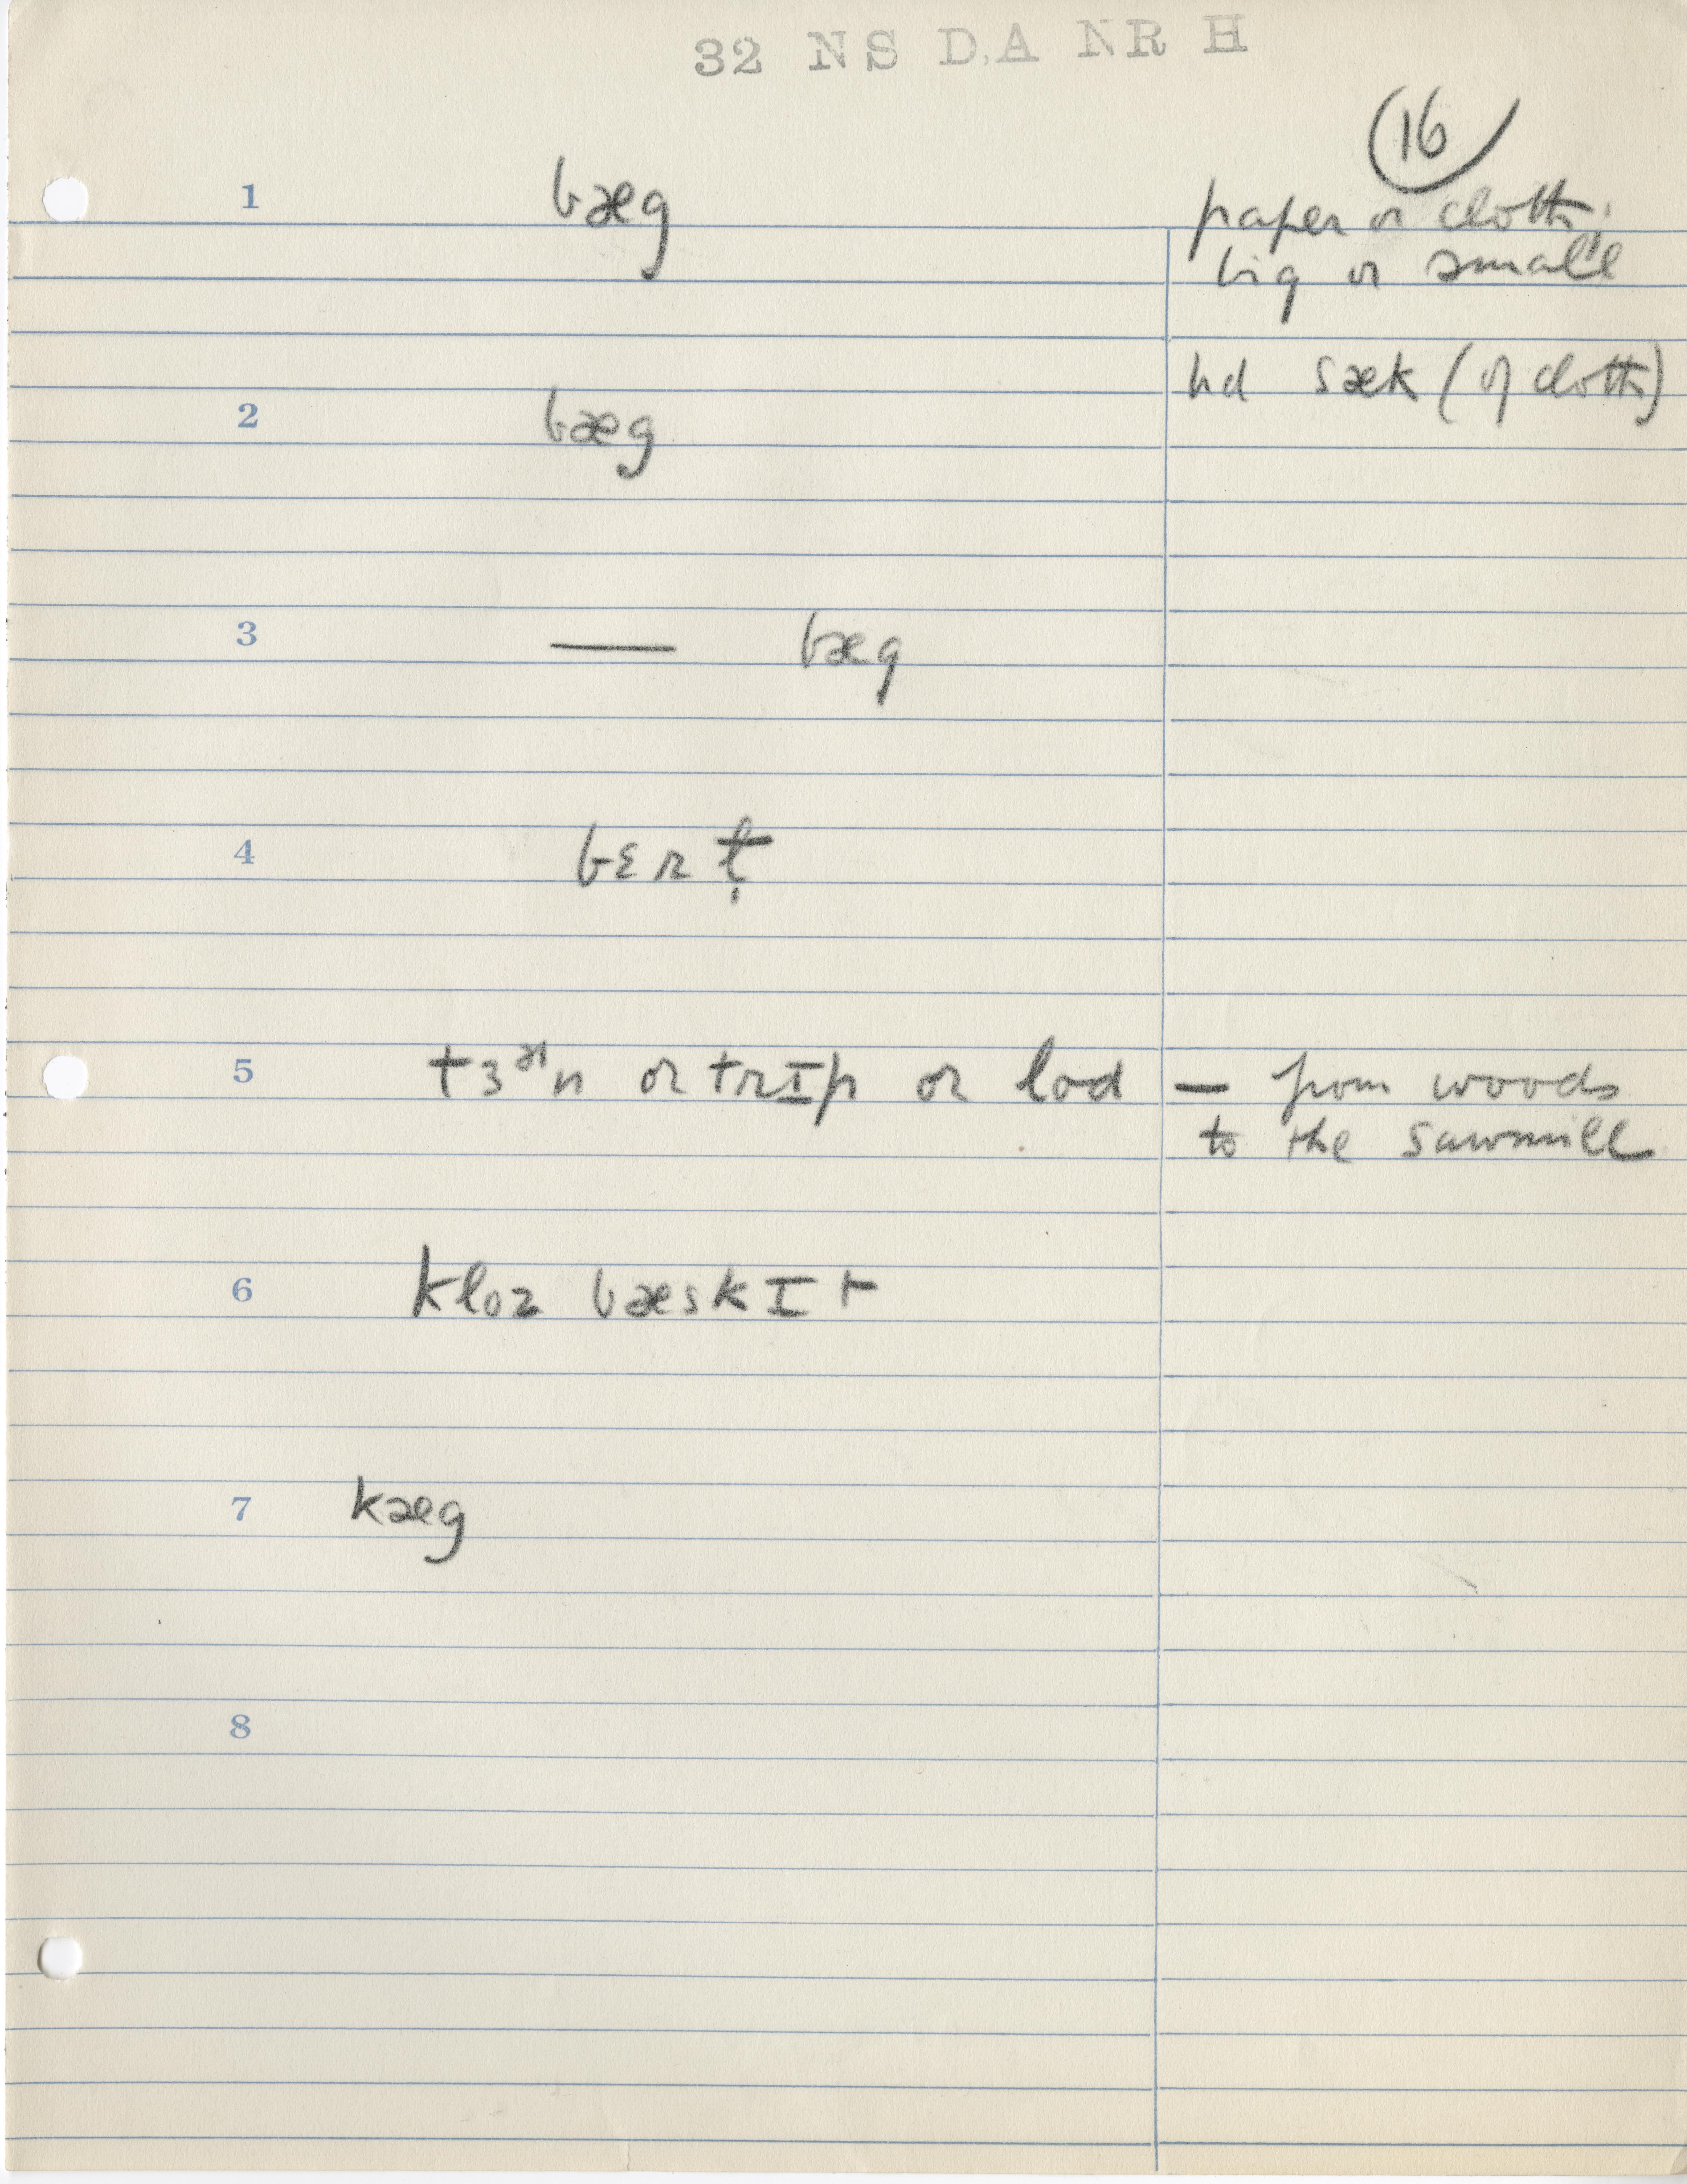 32 NS D,A NR H
16
1 bæg paper or cloth;
big or small
hd sæk (of cloth)
2 bæg
3 — bæg
4 bɛr t̬
5 t3ᵊɪn or trɪp or lod — from woods
to the sawmill
6 kloz bæskɪt
7 kæg
8